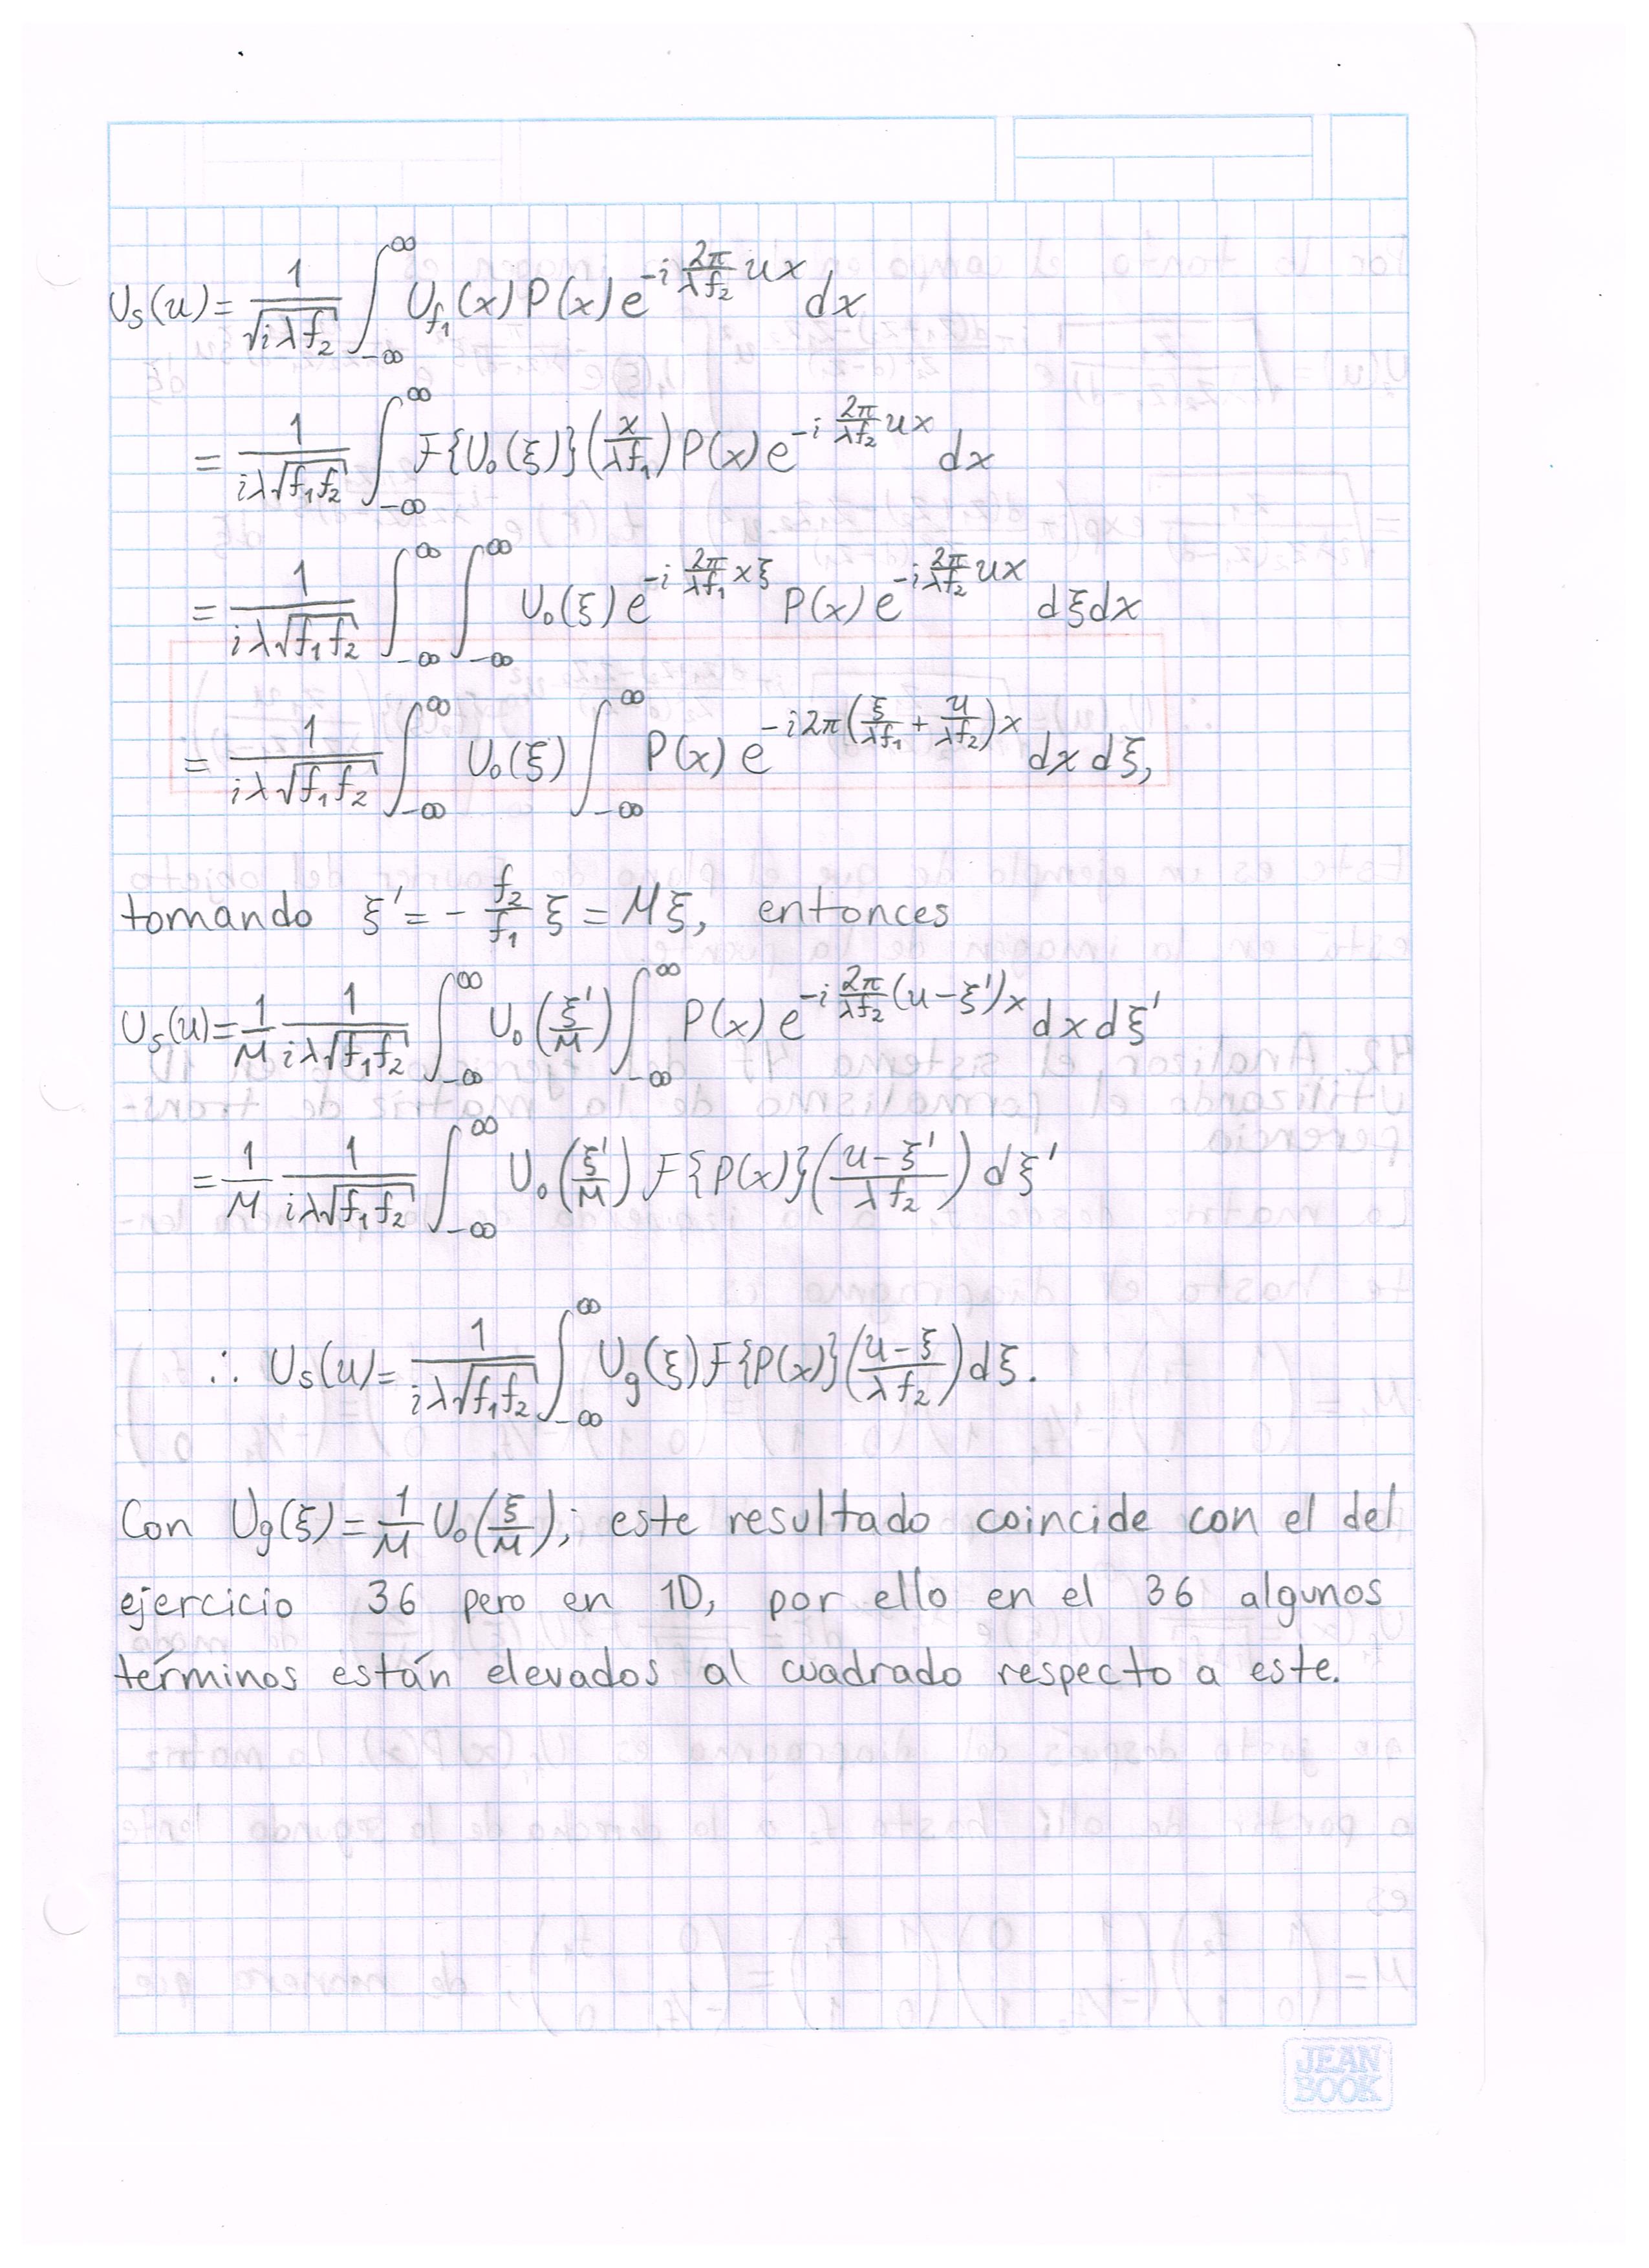 U_s(u) = \frac{1}{\sqrt{iλf_2}} \int_{-∞}^{∞} U_{f_1}(x) P(x) e^{-i\frac{2π}{λf_2}ux} dx
= \frac{1}{iλ\sqrt{f_1f_2}} \int_{-∞}^{∞} F{U_0(ξ)}(\frac{x}{λf_1}) P(x) e^{-i\frac{2π}{λf_2}ux} dx
= \frac{1}{iλ\sqrt{f_1f_2}} \int_{-∞}^{∞} \int_{-∞}^{∞} U_0(ξ) e^{-i\frac{2π}{λf_1}xξ} P(x) e^{-i\frac{2π}{λf_2}ux} dξdx
= \frac{1}{iλ\sqrt{f_1f_2}} \int_{-∞}^{∞} U_0(ξ) \int_{-∞}^{∞} P(x) e^{-i2π(\frac{ξ}{λf_1}+\frac{u}{λf_2})x} dx dξ,
tomando ξ' = -\frac{f_2}{f_1} ξ = Mξ, entonces
U_s(u) = \frac{1}{M} \frac{1}{iλ\sqrt{f_1f_2}} \int_{-∞}^{∞} U_0(\frac{ξ'}{M}) \int_{-∞}^{∞} P(x) e^{-i\frac{2π}{λf_2}(u-ξ')x} dx dξ'
= \frac{1}{M} \frac{1}{iλ\sqrt{f_1f_2}} \int_{-∞}^{∞} U_0(\frac{ξ'}{M}) F{P(x)}(\frac{u-ξ'}{λf_2}) dξ'
∴ U_s(u) = \frac{1}{iλ\sqrt{f_1f_2}} \int_{-∞}^{∞} U_g(ξ) F{P(x)}(\frac{u-ξ}{λf_2}) dξ.
Con U_g(ξ) = \frac{1}{M} U_0(\frac{ξ}{M}); este resultado coincide con el del
ejercicio 36 pero en 1D, por ello en el 36 algunos
términos están elevados al cuadrado respecto a este.
JEAN
BOOK